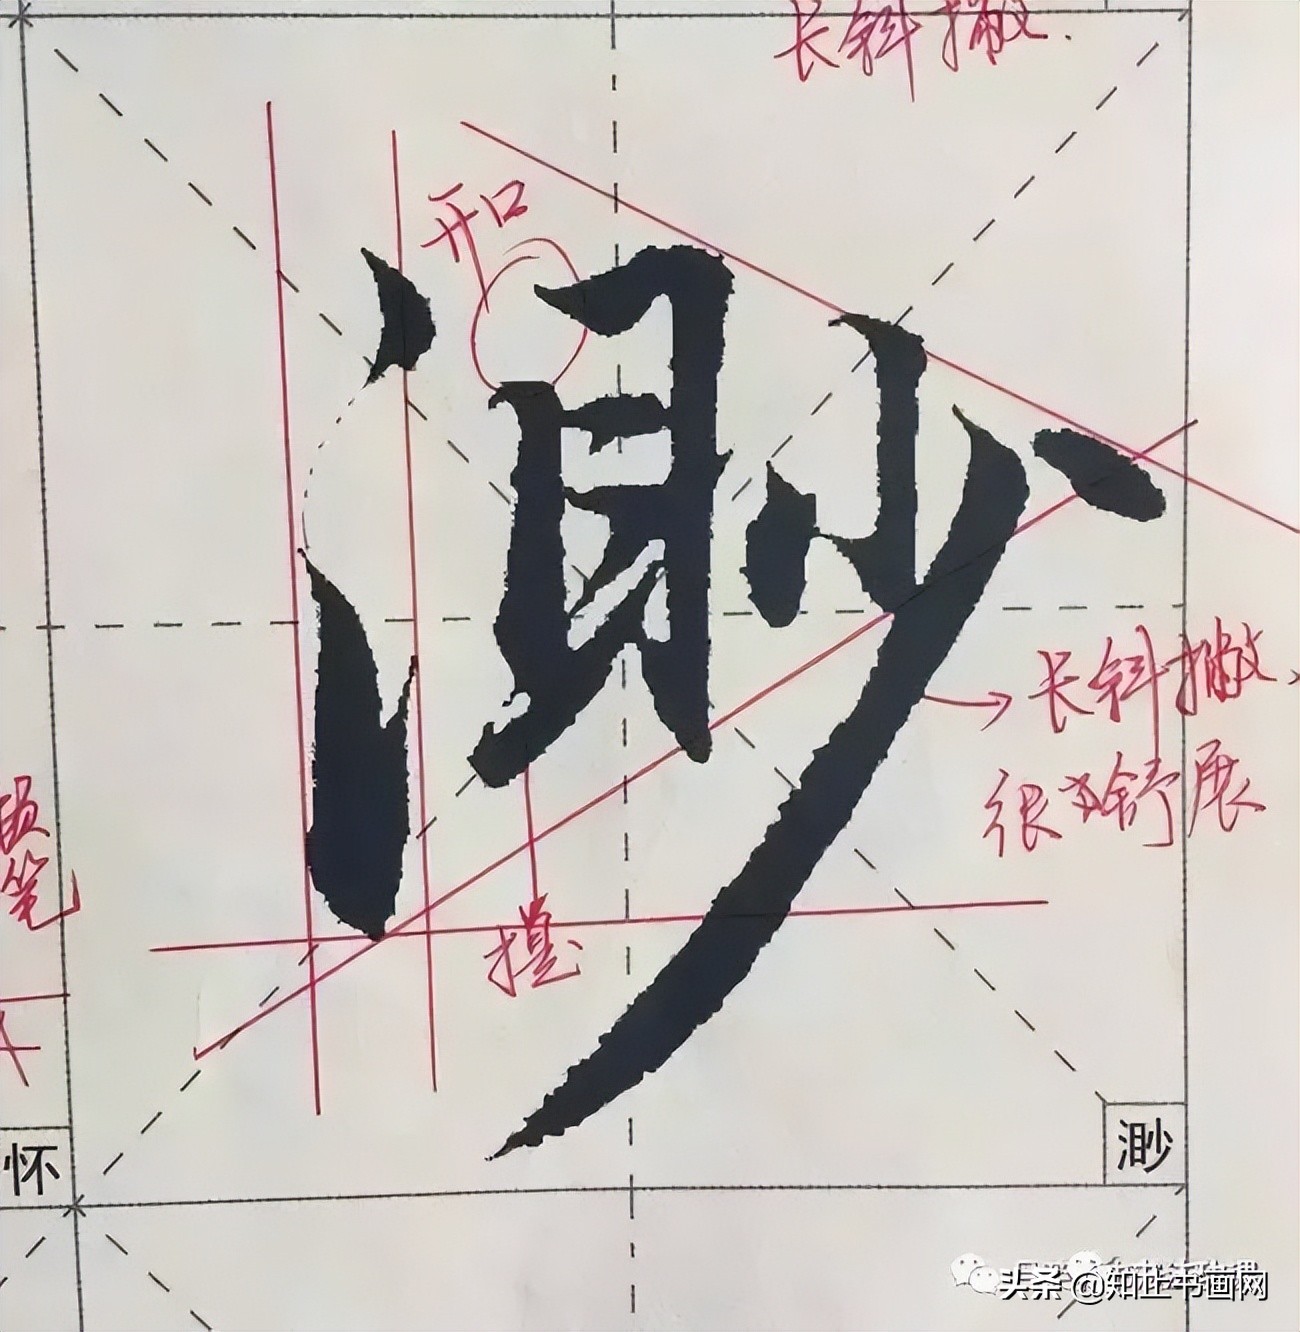 长斜撇.
开口
渺
长斜撇、
很舒展
笔
怀
渺
头条 @知止书画网